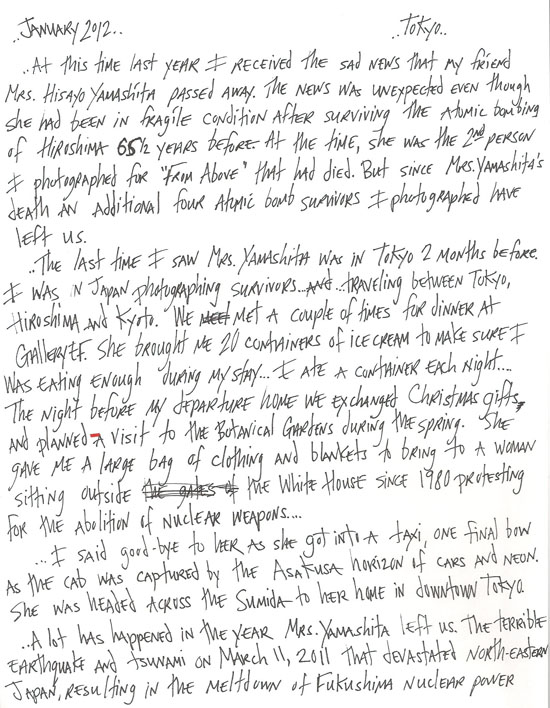 ..JANUARY 2012.. ..TOKYO..
..At this time last year I received the sad news that my friend
Mrs. Hisayo Yamashita passed away. The news was unexpected even though
she had been in fragile condition after surviving the Atomic bombing
of Hiroshima 65 1/2 years before. At the time, she was the 2nd person
I photographed for "From Above" that had died. But since Mrs. Yamashita's
death an additional four Atomic bomb survivors I photographed have
left us.
..The last time I saw Mrs. Yamashita was in Tokyo 2 months before.
I was in Japan photographing survivors...and...traveling between Tokyo,
Hiroshima and Kyoto. We meet met a couple of times for dinner at
Gallery EF. She brought me 20 containers of ice cream to make sure I
was eating enough during my stay... I ate a container each night....
The night before my departure home we exchanged Christmas gifts,
and planned a visit to the Botanical Gardens during the spring. She
gave me a large bag of clothing and blankets to bring to a woman
sitting outside the gates of the White House since 1980 protesting
for the abolition of nuclear weapons....
...I said good-bye to her as she got into a taxi, one final bow
as the cab was captured by the Asakusa horizon of cars and neon.
She was headed across the Sumida to her home in downtown Tokyo.
..A lot has happened in the year Mrs. Yamashita left us. The terrible
earthquake and tsunami on March 11, 2011 that devastated north-eastern
Japan, resulting in the meltdown of Fukushima nuclear power